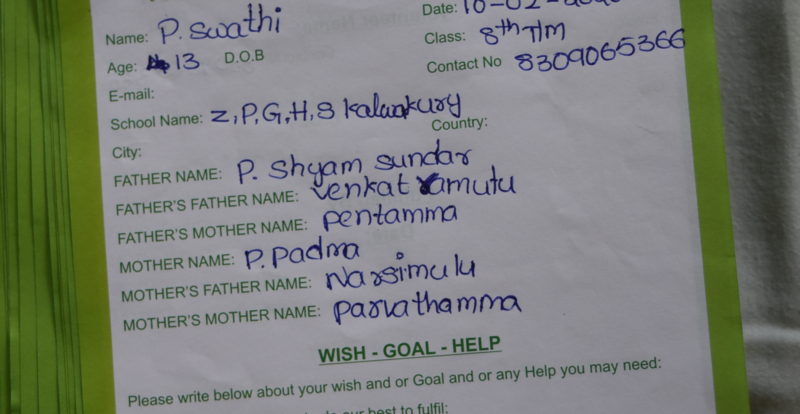 Name: P. Swathi Date: 10-02-
Age: 13 D.O.B Class: 8th T/M
E-mail: Contact No 8309065366
School Name: Z,P,G,H,S Kalwakury
City: Country:
FATHER NAME: P. Shyam sundar
FATHER'S FATHER NAME: Venkat ramulu
FATHER'S MOTHER NAME: Pentamma
MOTHER NAME: P. Padma
MOTHER'S FATHER NAME: Narsimulu
MOTHER'S MOTHER NAME: Parvathamma
WISH - GOAL - HELP
Please write below about your wish and or Goal and or any Help you may need:
our best to fulfil: